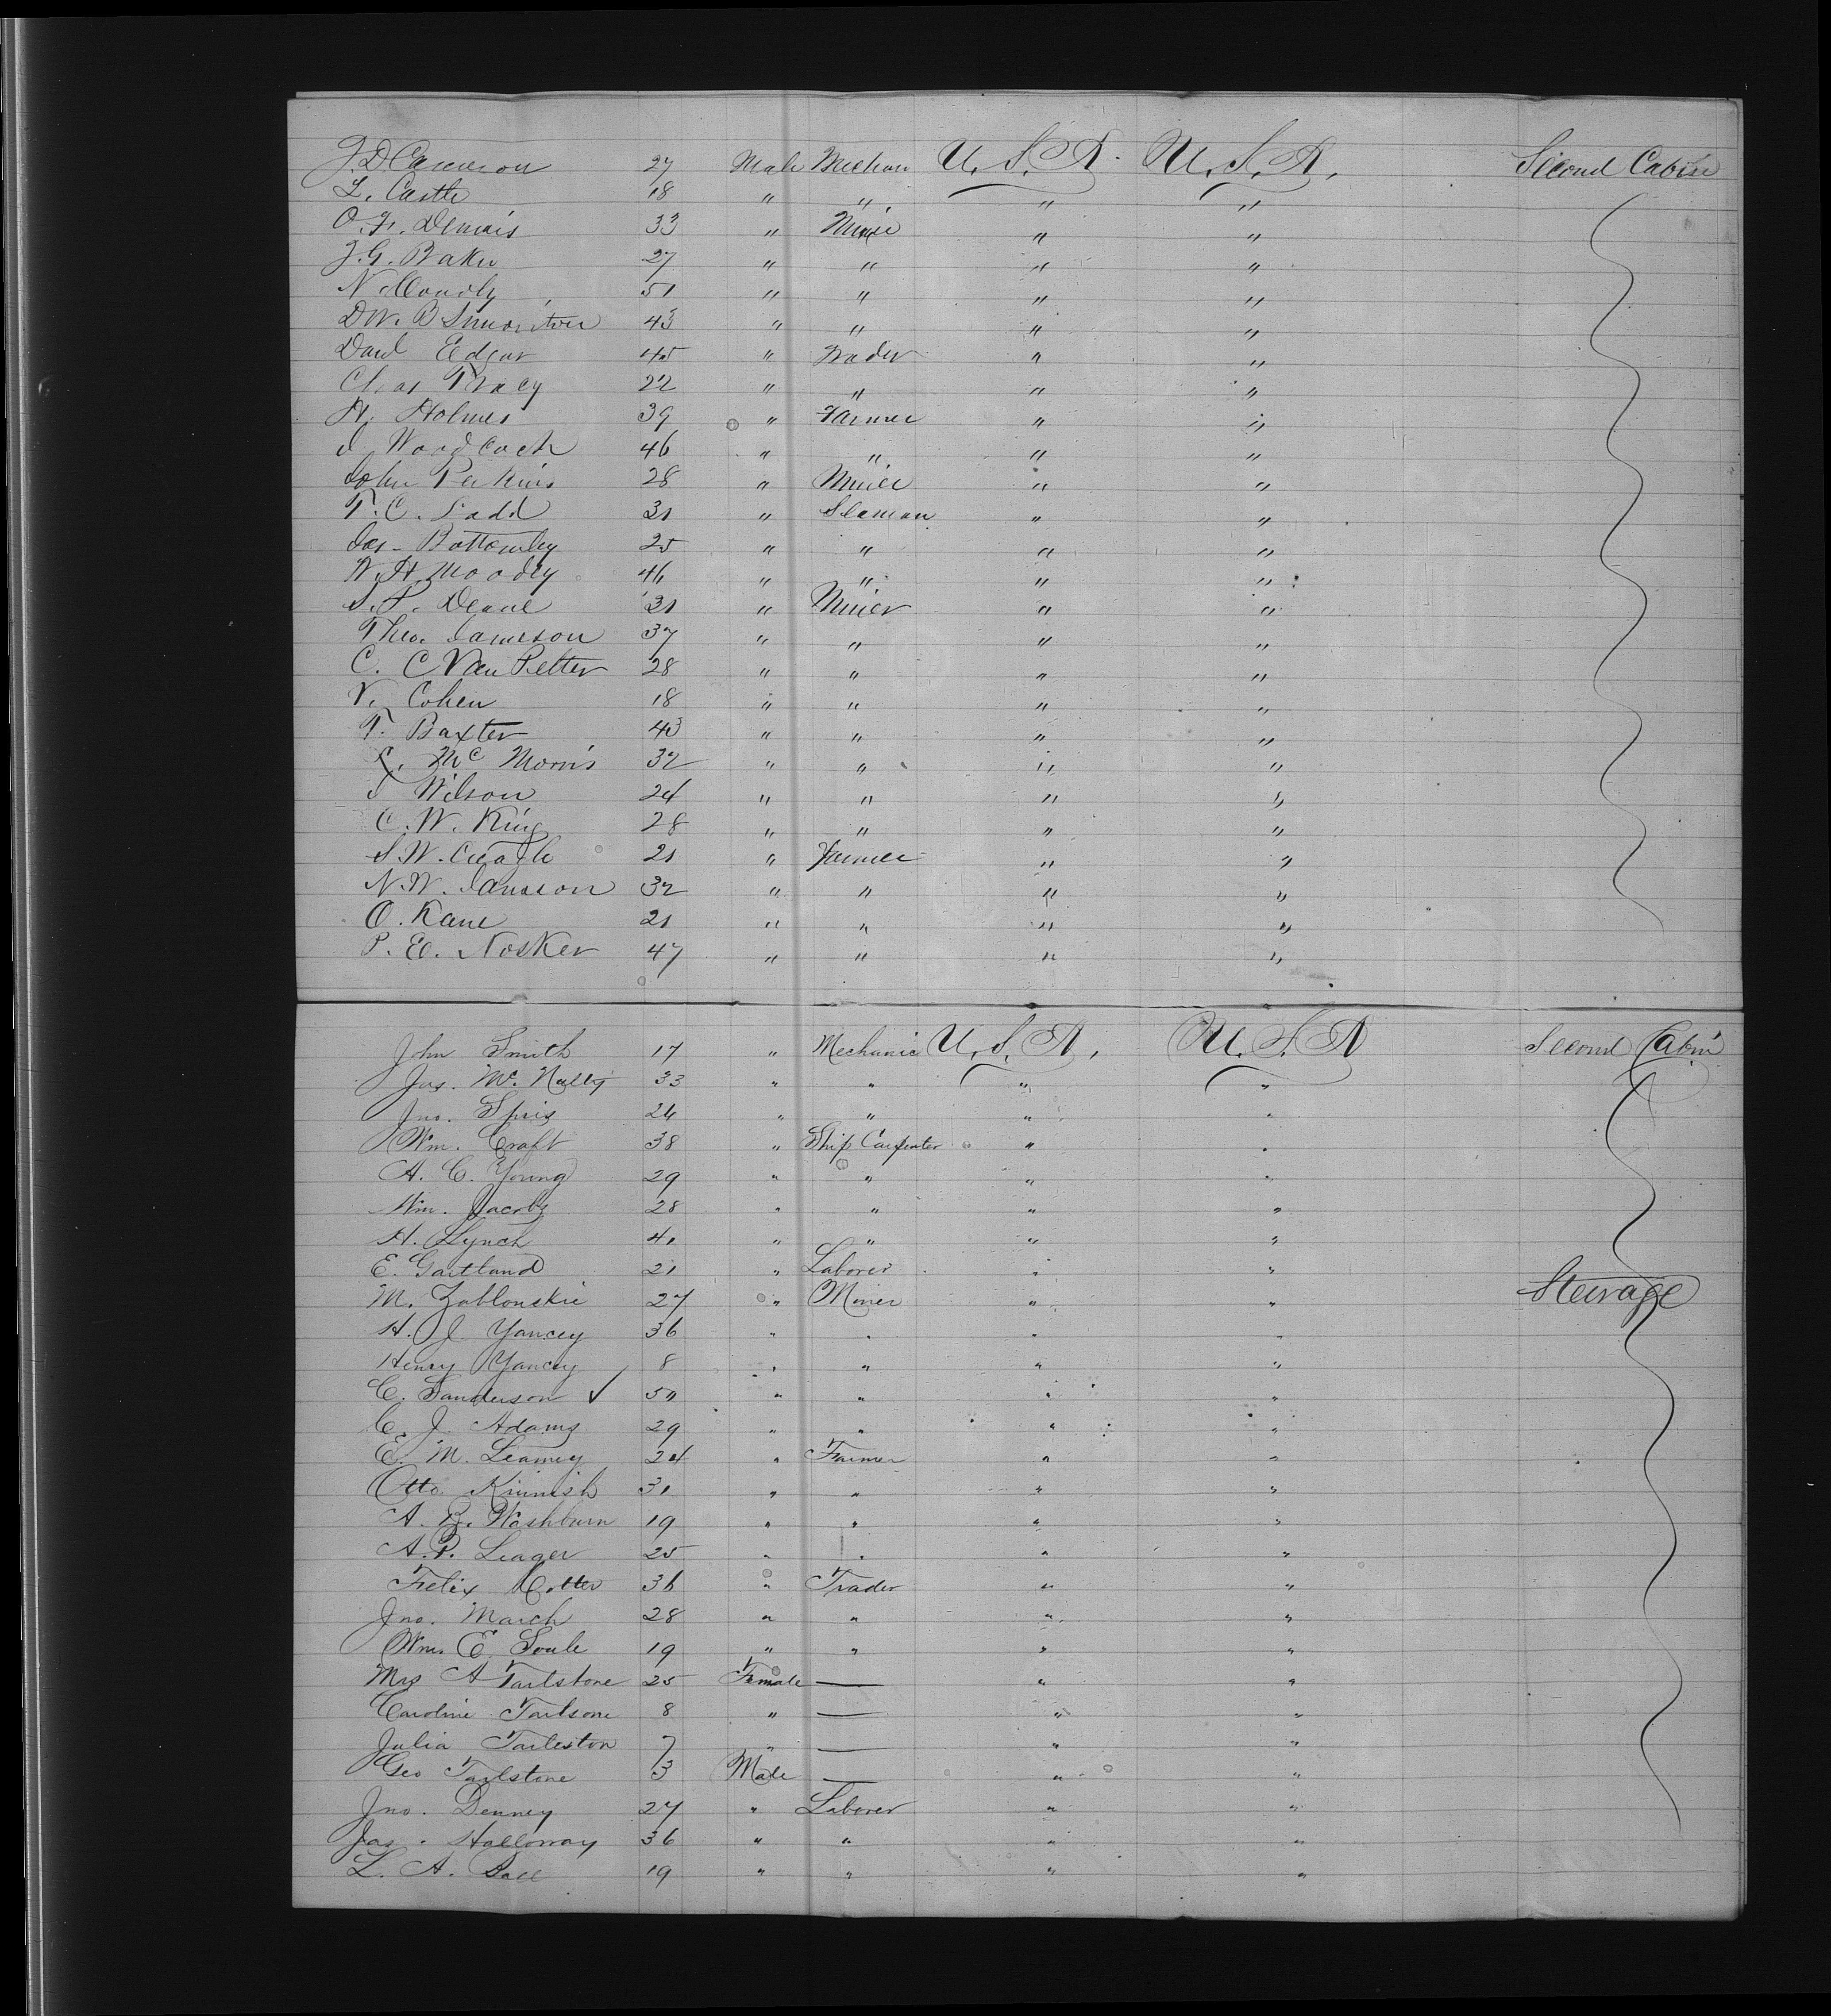 J. D. Cameron 27 Male Mechan U.S.A. U.S.A. Second Cabin
L. Castle 18 " " " "
O. F. Dennis 33 " Miner " "
J. G. Baker 27 " " " "
N. 51 " " " "
B Simonton 43 " " " "
Danl Edgar 45 " Trader " "
Chas Tracy 22 " " " "
H. Holmes 39 " Farmer " "
J Woodcock 46 " " " "
John Perkins 28 " Miner " "
T. C. Ladd 31 " Seaman " "
Jas. Bottomley 25 " " " "
W. H. Moody 46 " " " "
S. P. Deane 31 " Miner " "
Theo. Jameson 37 " " " "
C. C Van Pelter 28 " " " "
V. Cohen 18 " " " "
T. Baxter 43 " " " "
C. Mc Morris 32 " " " "
J Wilson 24 " " " "
C. W. King 28 " " " "
S. W. Creagle 21 " Farmer " "
N. W. Jansson 32 " " " "
O. Kane 21 " " " "
P. E. Nosker 47 " " " "
John Smith 17 " Mechanic U.S.A. U.S.A Second Cabin
Jas. Mc. Nally 33 " " " "
Jno. Spris 24 " " " "
Wm. Craft 38 " Ship Carpenter " "
A. C. Young 29 " " " "
Wm. Jacoby 28 " " " "
H. Lynch 41 " " " "
E. Gartland 21 " Laborer " "
M. Zablonskie 27 " Miner " " Steerage
H. J. Yancey 36 " " " "
Henry Yancey 8 " " " "
C. Sanderson ✓ 50 " " " "
C. J. Adams 29 " " " "
E. M. Leamey 24 " Farmer " "
Otto Kinnish 31 " " " "
A. B. Washburn 19 " " " "
A. P. Leager 25 " " " "
Felix Cotter 36 " Trader " "
Jno. March 28 " " " "
Wm. E. Soule 19 " " " "
Mrs A Tarlstone 25 Female — " "
Caroline Tarlsone 8 " — " "
Julia Tarleston 7 " — " "
Geo Tarlstone 3 Male — " "
Jno. Denney 27 " Laborer " "
Jas. Holloway 36 " " " "
L. A. 19 " " " "